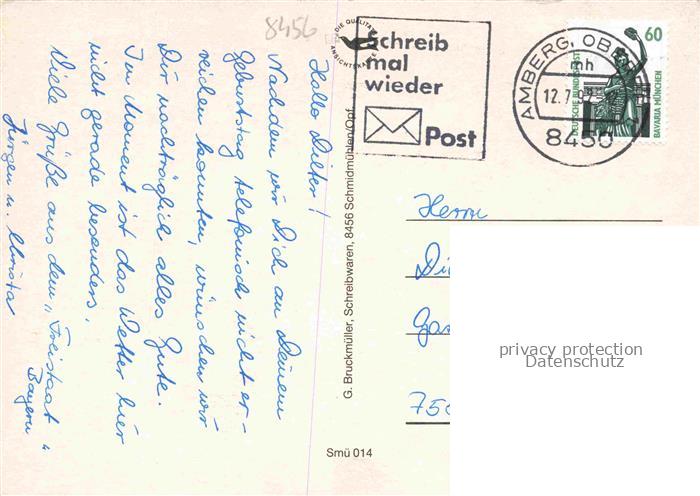 8456
DIE QUALITÄTS
ANSICHTSKARTE
Schreib
mal
wieder
Post
AMBERG, OB
mh
12.7.
8450
60
DEUTSCHE BUNDESPOST
BAVARIA MÜNCHEN
Hallo Dieter!
Nachdem wir Dich an Deinem
Geburtstag telefonisch nicht er-
reichen konnten, wünschen wir
Dir nachträglich alles Gute.
Im Moment ist das Wetter hier
nicht gerade besonders.
Viele Grüße aus dem "Freistaat"
Bayern
Jürgen u. Christa
G. Bruckmüller, Schreibwaren, 8456 Schmidmühlen/Opf.
Smü 014
Herrn
Di
Gar
750
privacy protection
Datenschutz